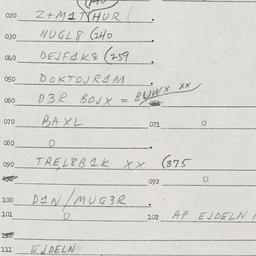 020 Z+M1T HUR (
030 NUGL8 (240
040 DEJFAK8 (259
050 DOKTOJR1M
060 D3R BOJX = BUWX XX
070 BAXL 071 O
080 O
090 TREL8B1K XX (375
092 O
100 D1N/MUG3R
101 O 102 AP EJDELN
111 EJDELN